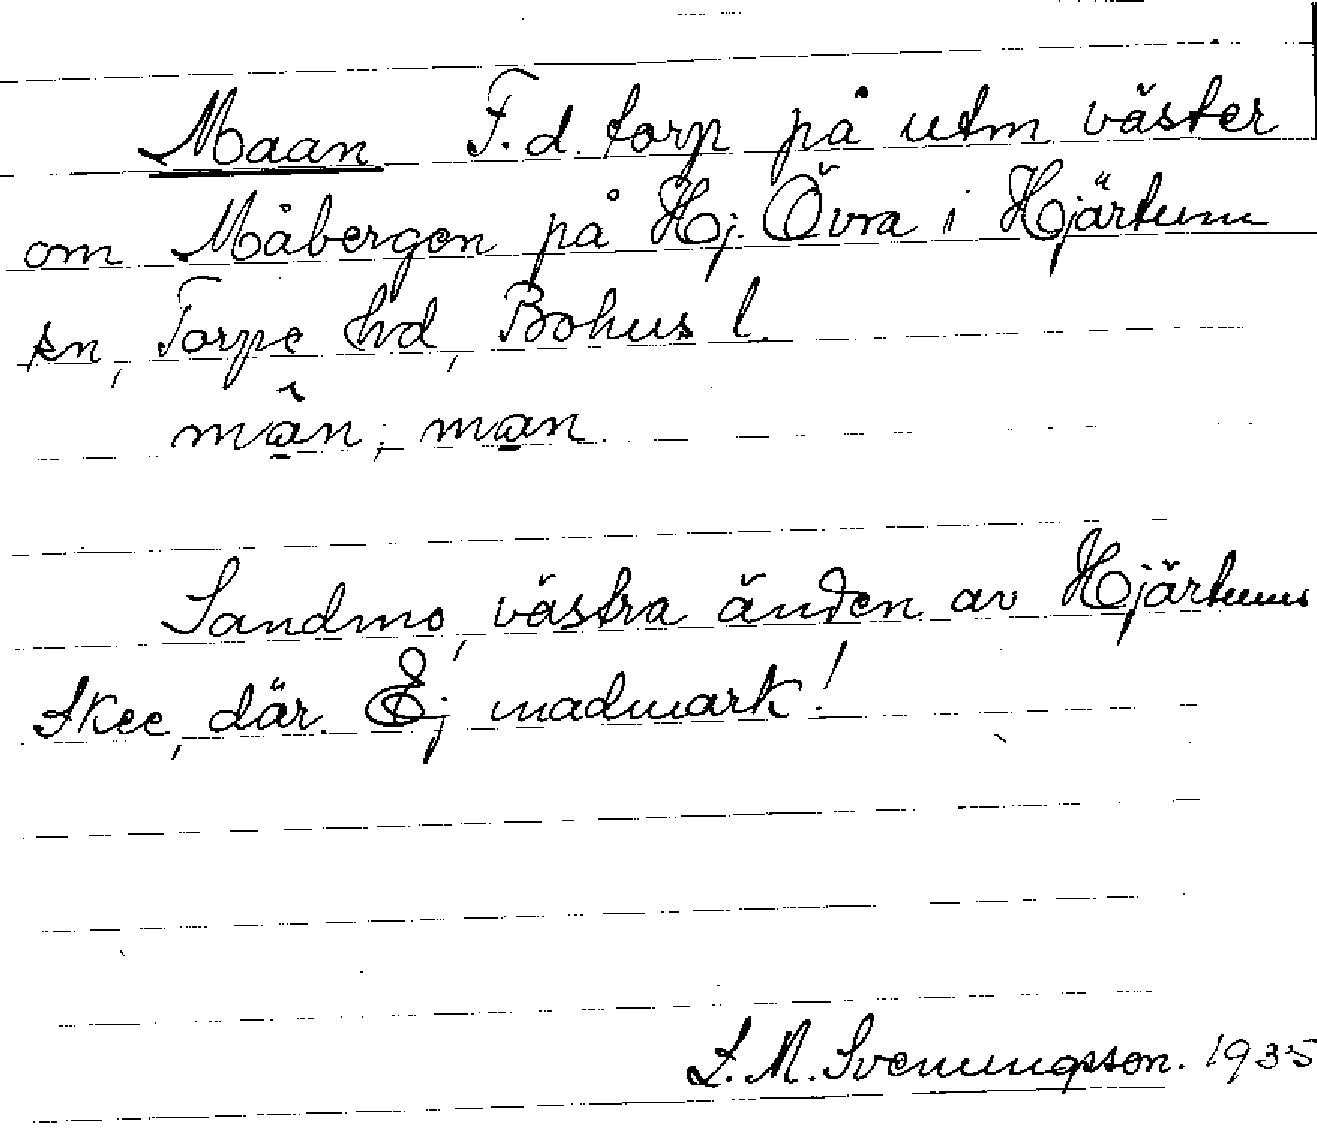 Maan F.d. torp på utm väster
om Måbergen på Hj. Övra i Hjärtum
sn, Torpe hd, Bohus l.
mân; man
Sandmo, västra änden av Hjärtums
Skee, där. Ej madmark!
L. M. Svenungsson. 1935